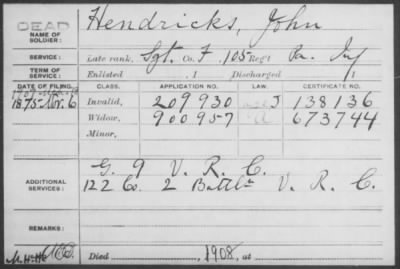 DEAD
Hendricks, John
NAME OF SOLDIER:
SERVICE: Late rank, Sgt. Co. F, 105 Reg't Pa. Inf
TERM OF SERVICE: Enlisted , 1 Discharged , 1
DATE OF FILING. CLASS. APPLICATION NO. LAW. CERTIFICATE NO.
1875 Nov. 6 Invalid, 209930 J 138136
Widow, 900957 673744
Minor,
G. 9 V. R. C.
ADDITIONAL SERVICES: 122 Co. 2 Battln V. R. C.
REMARKS:
Died 1908, at